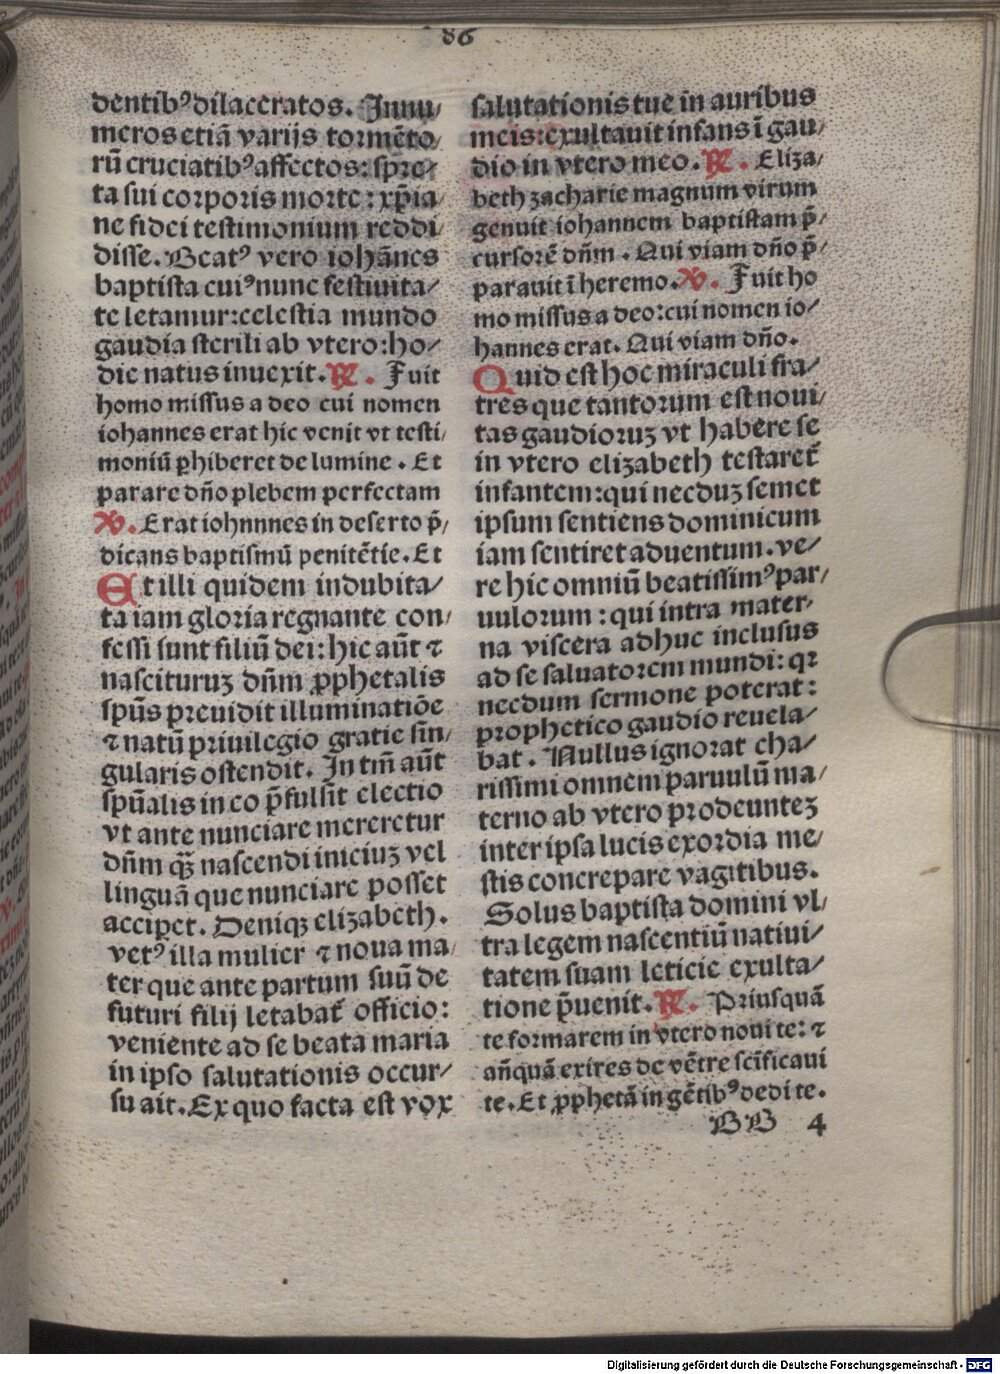 86
dentibꝰ dilaceratos. Innu/
meros etiā varijs tormēto/
rū cruciatibꝰ affectos: spre/
ta sui corporis morte: xp̄ia/
ne fidei testimonium reddi/
disse. Beatꝰ vero iohānes
baptista cuiꝰ nunc festiuita/
te letamur: celestia mundo
gaudia sterili ab vtero: ho/
die natus inuexit. ℟. Fuit
homo missus a deo cui nomen
iohannes erat hic venit vt testi/
moniū ꝑhiberet de lumine. Et
parare dn̄o plebem perfectam
℣. Erat iohnnnes in deserto p̄/
dicans baptismū penitētie. Et
Et illi quidem indubita/
ta iam gloria regnante con/
fessi sunt filiū dei: hic aūt ⁊
nascituruꝫ dn̄m ꝓphetalis
spūs preuidit illuminatiōe
⁊ natū priuilegio gratie sin/
gularis ostendit. In tm̄ aūt
spūalis in eo p̄fulsit electio
vt ante nunciare mereretur
dn̄m qꝫ̄ nascendi iniciuꝫ vel
linguā que nunciare posset
acciꝑet. Deniqꝫ elizabeth.
vetꝰ illa mulier ⁊ noua ma/
ter que ante partum suū de
futuri filij letabat᷑ officio:
veniente ad se beata maria
in ipso salutationis occur/
su ait. Ex quo facta est vox
salutationis tue in auribus
meis: exultauit infans ī gau/
dio in vtero meo. ℟. Eliza/
beth zacharie magnum virum
genuit iohannem baptistam p̄/
cursorē dn̄m. Qui viam dn̄o p̄/
parauit ī heremo. ℣. Fuit ho
mo missus a deo: cui nomen io/
hannes erat. Qui viam dn̄o.
Quid est hoc miraculi fra/
tres que tantorum est noui/
tas gaudioruꝫ vt habere se
in vtero elizabeth testaret᷑
infantem: qui necduꝫ semet
ipsum sentiens dominicum
iam sentiret aduentum. ve/
re hic omniū beatissimꝰ par/
uulorum: qui intra mater/
na viscera adhuc inclusus
ad se saluatorem mundi: qꝛ
necdum sermone poterat:
prophetico gaudio reuela/
bat. Nullus ignorat cha/
rissimi omnem paruulū ma/
terno ab vtero prodeunteꝫ
inter ipsa lucis exordia me/
stis concrepare vagitibus.
Solus baptista domini vl/
tra legem nascentiū natiui/
tatem suam leticie exulta/
tione p̄uenit. ℟. Priusquā
te formarem in vtero noui te: ⁊
an̄quā exires de vētre scīficaui
te. Et ꝓphetā in gētibꝰ dedi te.
BB 4
Digitalisierung gefördert durch die Deutsche Forschungsgemeinschaft - DFG